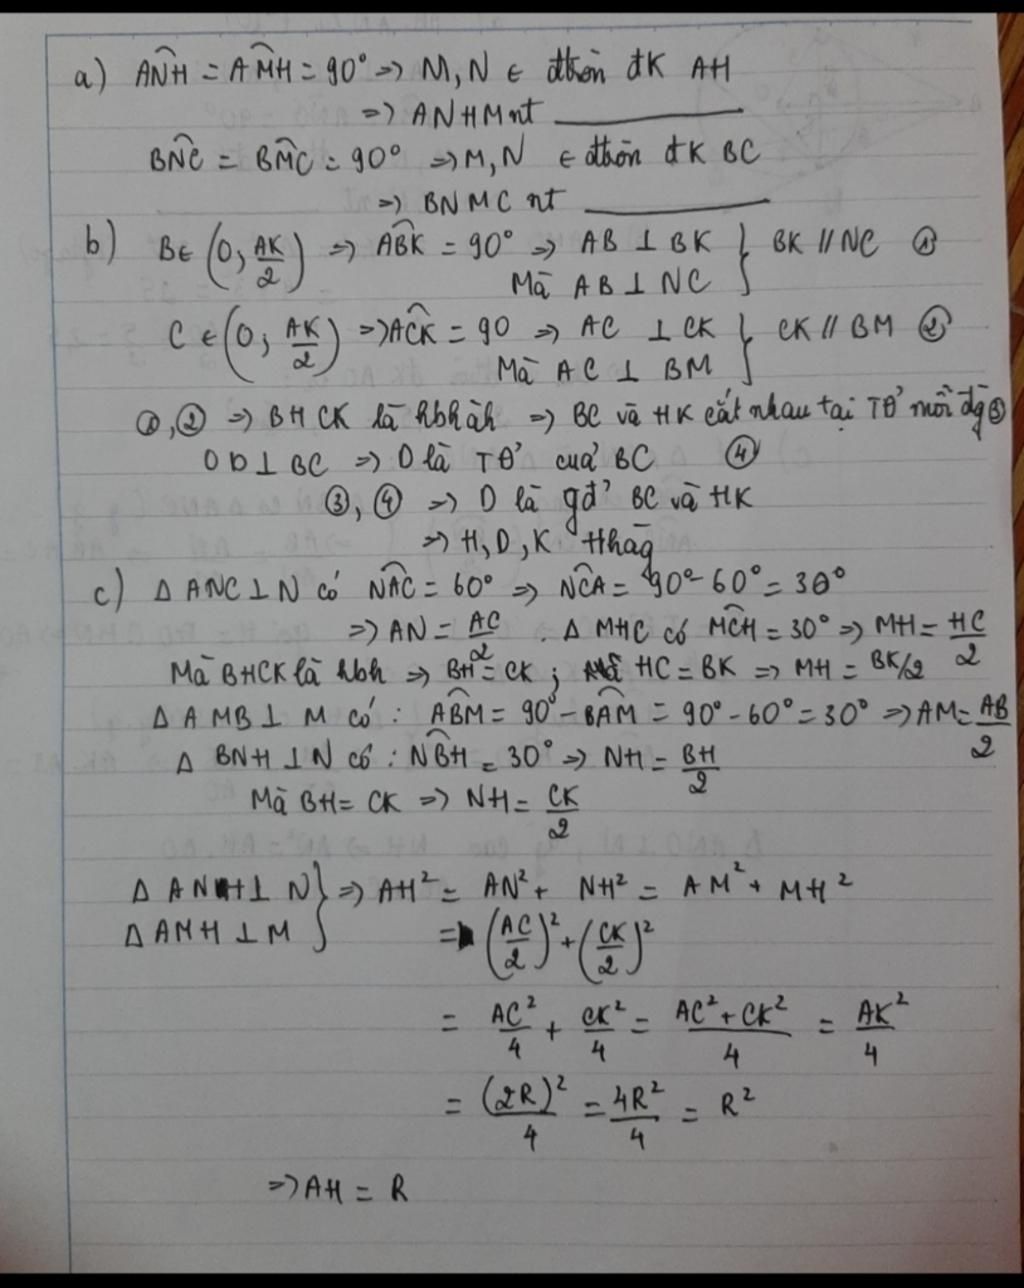 a) ANH = AMH = 90° => M, N ∈ đtròn đK AH
=> ANHM nt
BNC = BMC = 90° => M, N ∈ đtròn đK BC
=> BNMC nt
b) B ∈ (O; AK/2) => ABK = 90° => AB ⊥ BK } BK // NC ①
Mà AB ⊥ NC
C ∈ (O; AK/2) => ACK = 90 => AC ⊥ CK } CK // BM ②
Mà AC ⊥ BM
①, ② => BHCK là hbhàh => BC và HK cắt nhau tại TĐ' mỗi đg ③
OD ⊥ BC => D là TĐ' của BC ④
③, ④ => D là gđ' BC và HK
=> H, D, K thhàg
c) Δ ANC ⊥ N có NAC = 60° => NCA = 90° - 60° = 30°
=> AN = AC/2 . Δ MHC có MCH = 30° => MH = HC/2
Mà BHCK là hbh => BH = CK ; HC = BK => MH = BK/2
Δ AMB ⊥ M có : ABM = 90° - BAM = 90° - 60° = 30° => AM = AB/2
Δ BNH ⊥ N có : NBH = 30° => NH = BH/2
Mà BH = CK => NH = CK/2
Δ ANH ⊥ N } => AH² = AN² + NH² = AM² + MH²
Δ AMH ⊥ M = (AC/2)² + (CK/2)²
= AC²/4 + CK²/4 = (AC² + CK²)/4 = AK²/4
= (2R)²/4 = 4R²/4 = R²
=> AH = R